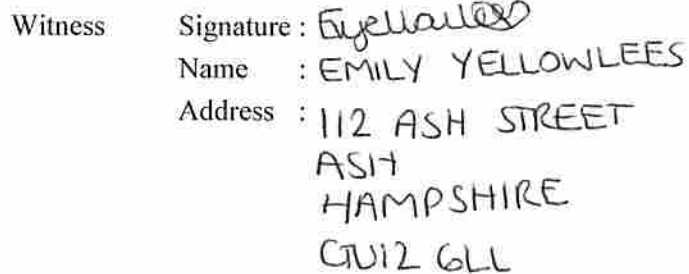 Witness Signature : Eyellowlees
Name : EMILY YELLOWLEES
Address : 112 ASH STREET
ASH
HAMPSHIRE
GU12 6LL